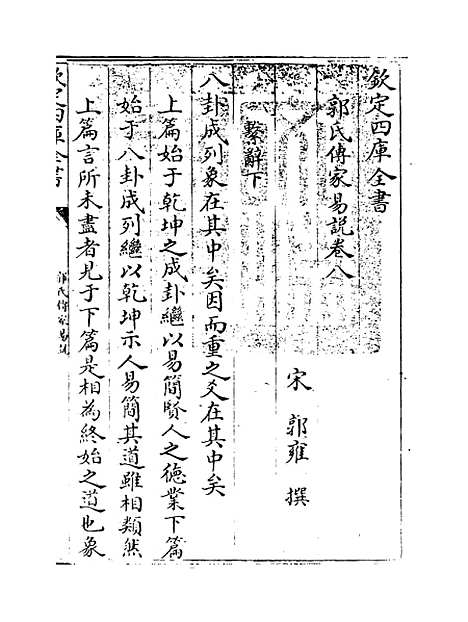 欽定四庫全書
郭氏傳家易說卷八
宋 郭雍 撰
繫辭下
八卦成列象在其中矣因而重之爻在其中矣
上篇始于乾坤之成卦繼以易簡賢人之德業下篇
始于八卦成列繼以乾坤示人易簡其道雖相類然
上篇言所未盡者見于下篇是相為終始之道也象
欽定四庫全書
郭氏傳家易說